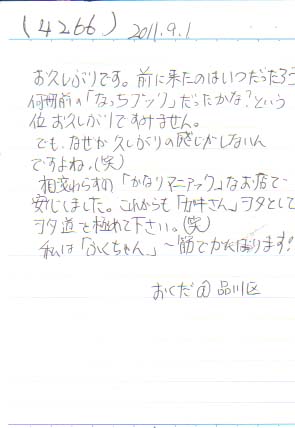 (4266) 2011.9.1
お久しぶりです。前に来たのはいつだったろう
何冊前の「なっちブック」だったかな?という
位お久しぶりですみません。
でも、なぜか久しぶりの感じがしないん
ですよね。(笑)
相変わらずの「かなりマニアック」なお店で
安心しました。これからも「ガキさん」ヲタとして
ヲタ道を極めて下さい。(笑)
私は「ふくちゃん」一筋でがんばります!
おくだ@品川区